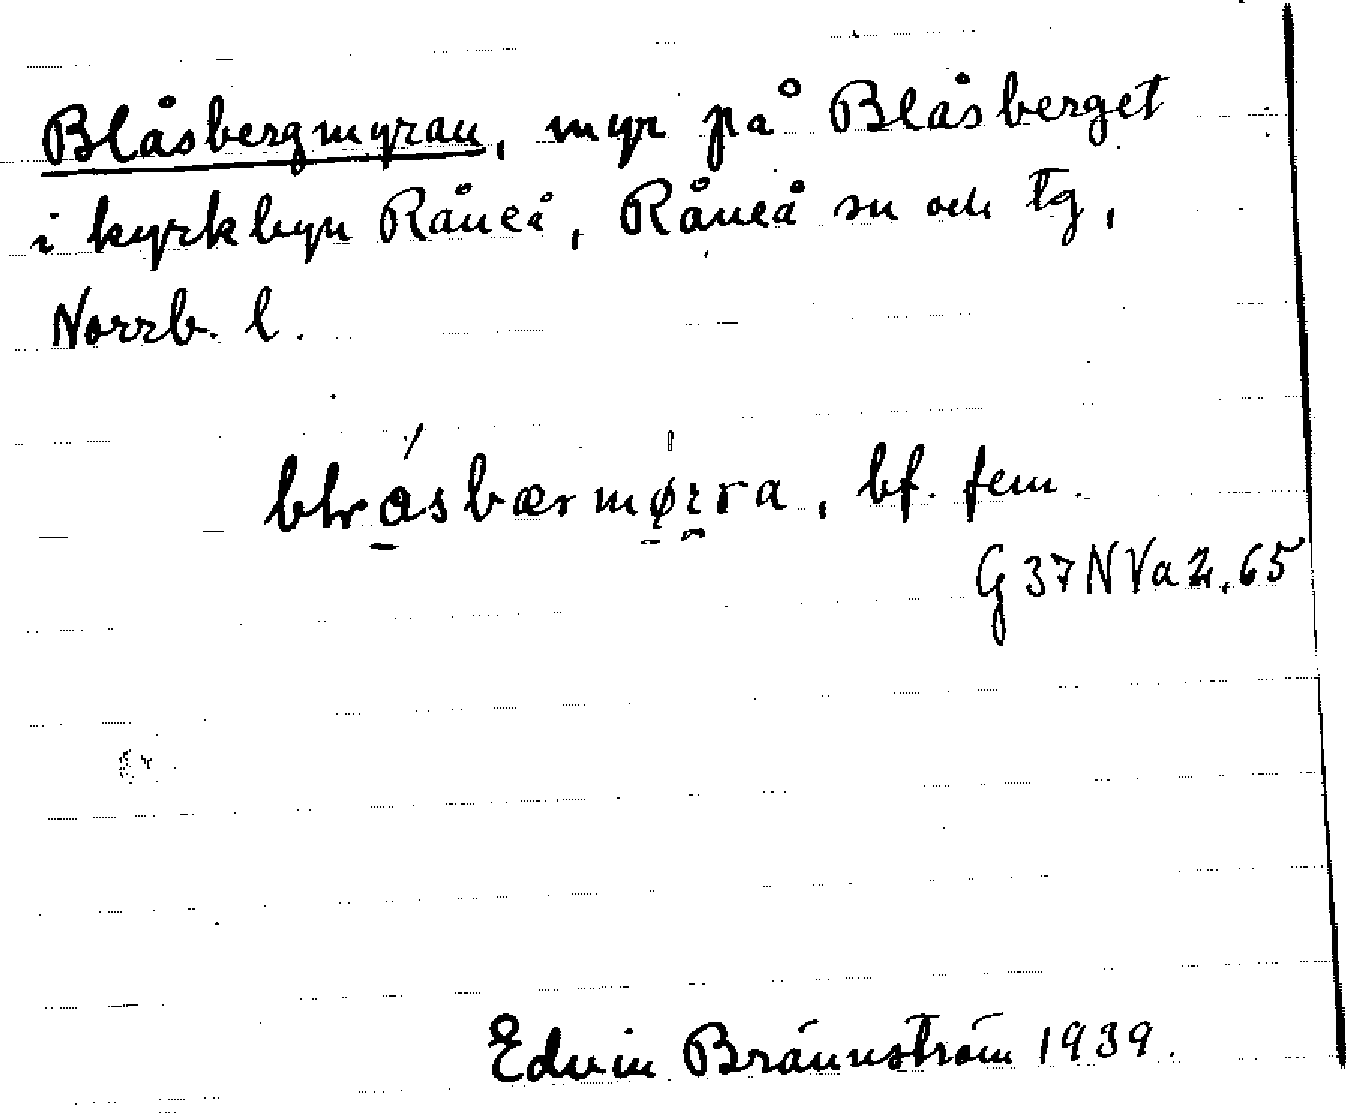 Blåsbergmyran, myr på Blåsberget
i kyrkbyn Råneå, Råneå sn och tg,
Norrb. l.
bf. fem.
G 37 N Va 2. 65
Edvin Brännström 1939.